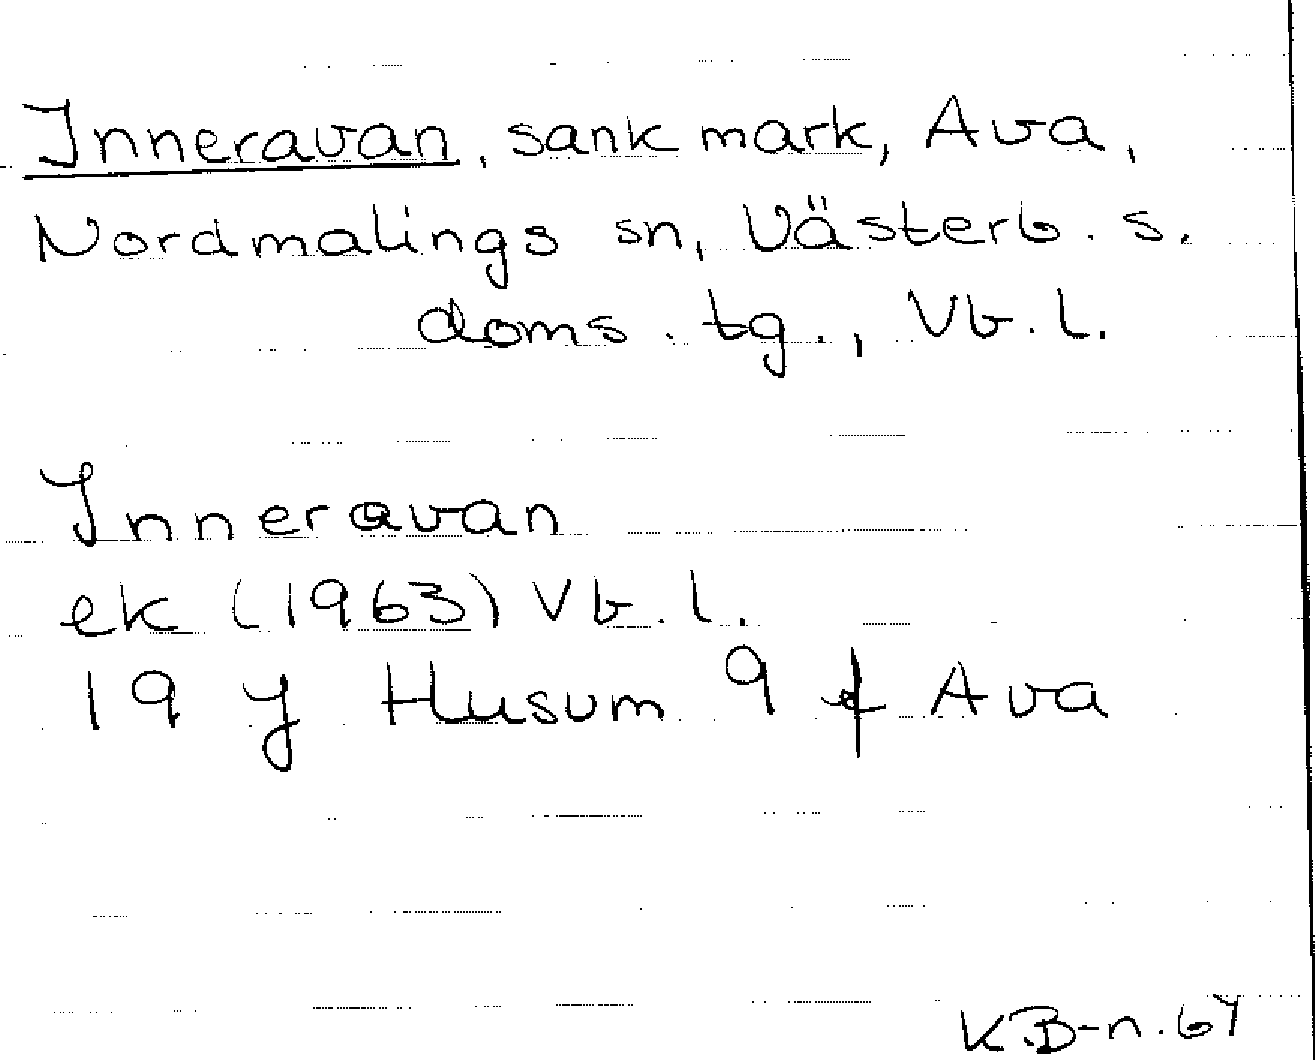 Inneravan, sank mark, Ava,
Nordmalings sn, Västerb. s.
doms. tg., Vb. l.
Inneravan
ek (1963) Vb. l.
19 J Husum 9 f Ava
KB-n. 64